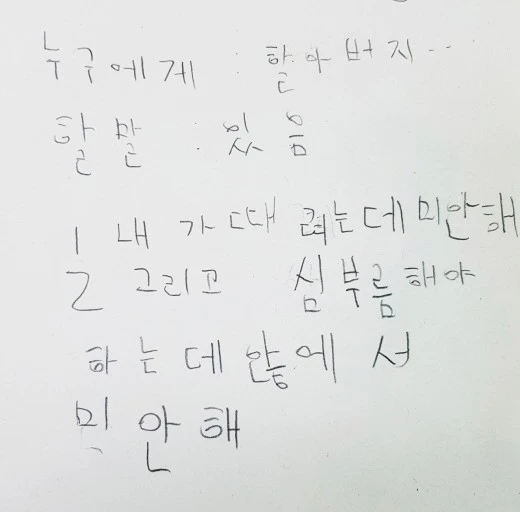 누구에게 : 할아버지..
할말 : 있음
1 내가 때려는데 미안해
2 그리고 심부름해야
하는데 않에서
미안해